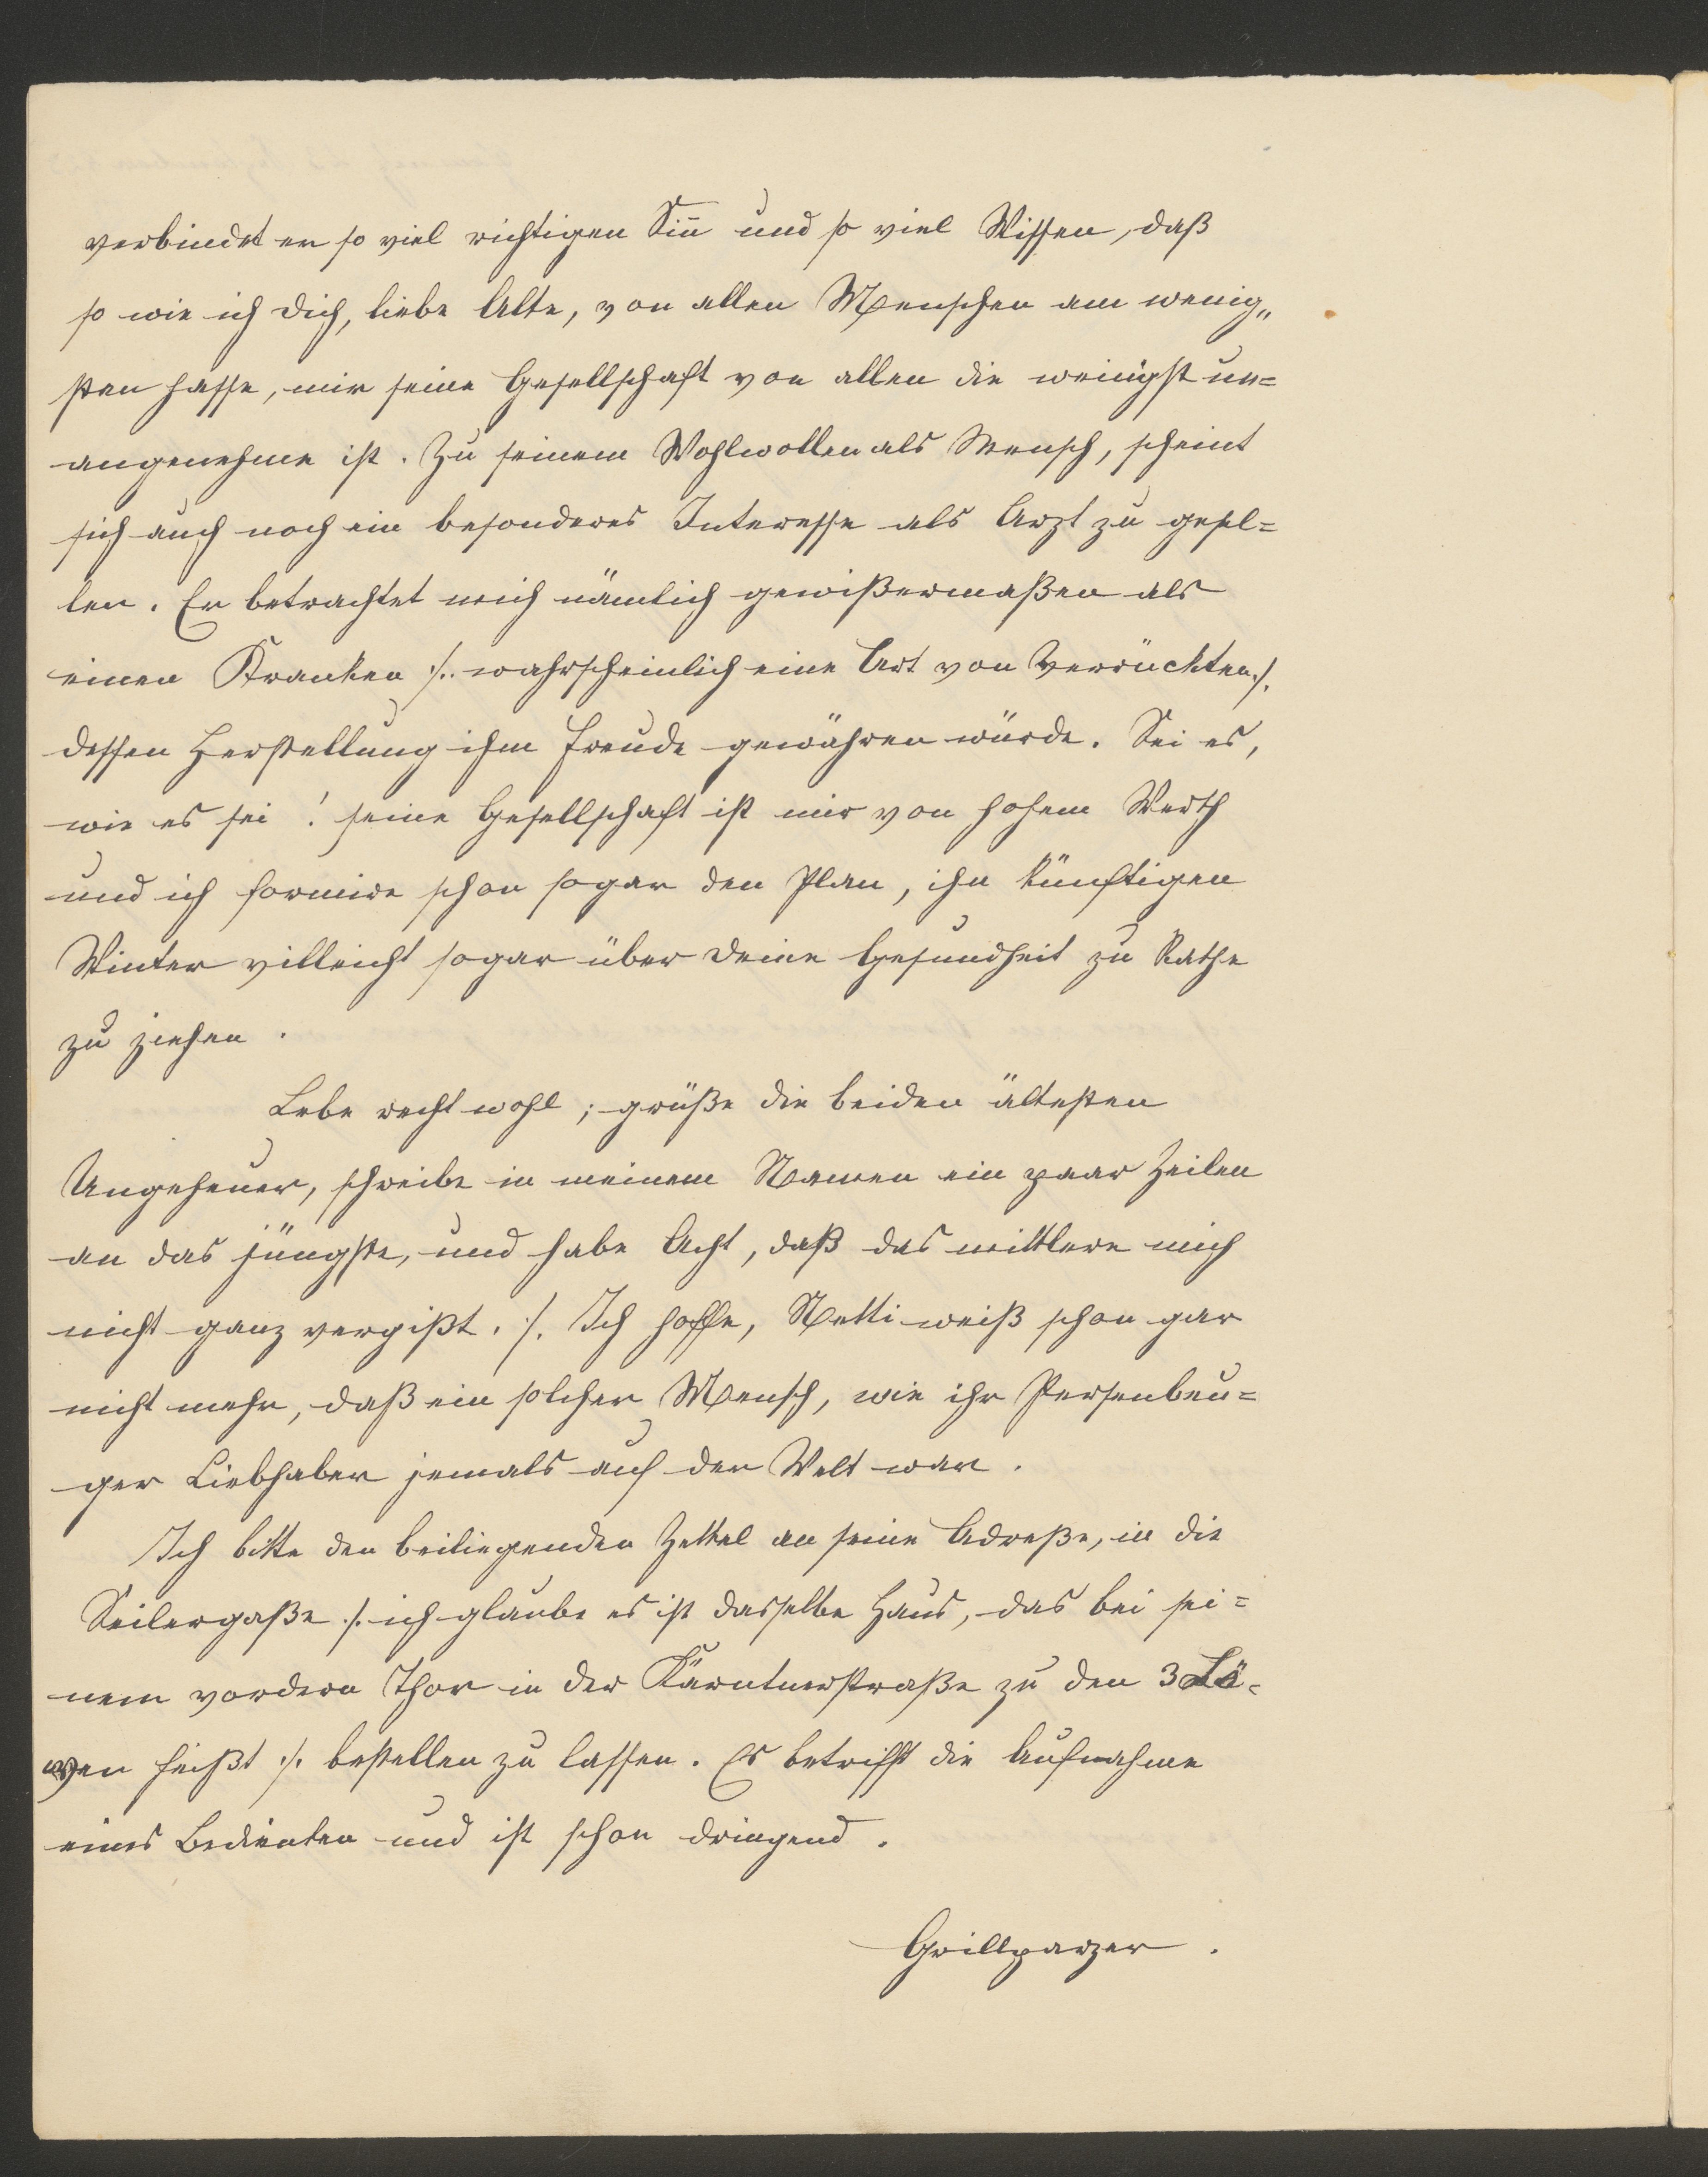 verbindet er so viel richtigen Siñ und so viel Wissen, daß
so wie ich dich, liebe Alte, von allen Menschen am wenig„
sten hasse, mir seine Gesellschaft von allen die wenigst un=
angenehme ist. Zu seinem Wohlwollen als Mensch, scheint
sich auch noch ein besonderes Interesse als Arzt zu gesel=
len. Er betrachtet mich nämlich gewißermaßen als
einen Kranken /: wahrscheinlich eine Art von Verrückten :/
dessen Herstellung ihm Freude gewähren würde. Sei es,
wie es sei! seine Gesellschaft ist mir von hohem Werth
und ich formire schon sogar den Plan, ihn künftigen
Winter villeicht sogar über deine Gesundheit zu Rathe
zu ziehen.
Lebe recht wohl; grüße die beiden ältesten
Ungeheuer, schreibe in meinem Namen ein paar Zeilen
an das jüngste, und habe Acht, daß das mittlere mich
nicht ganz vergißt. /: Ich hoffe, Netti weiß schon gar
nicht mehr, daß ein solcher Mensch, wie ihr Persenbeu=
ger Liebhaber jemals auf der Welt war.
Ich bitte den beiliegenden Zettel an seine Adreße, in die
Seilergaße /: ich glaube es ist dasselbe Haus, das bei sei=
nem vordern Thor in der Kärntnerstraße zu den 3 Lö=
wen heißt :/ bestellen zu lassen. Es betrifft die Aufnahme
eines Bedienten und ist schon dringend.
Grillparzer.